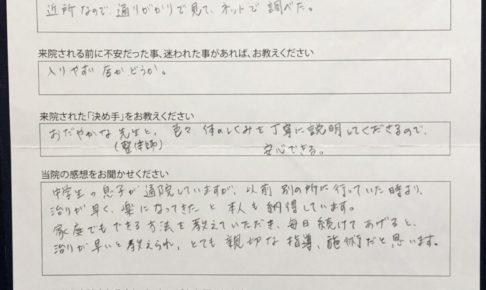 近所なので、通りがかりで見て、ネットで調べた。
来院される前に不安だった事、迷われた事があれば、お教えください
入りやすい店かどうか。
来院された「決め手」をお教えください
おだやかな先生と、色々体のしくみを丁寧に説明してくださるので、
(整体師)
安心できる。
当院の感想をお聞かせください
中学生の息子が通院していますが、以前別の所に行っていた時より、
治りが早く、楽になってきたと本人も納得しています。
家庭でもできる方法を教えていただき、毎日続けてあげると、
治りが早いと教えられ、とても親切な指導、施術だと思います。